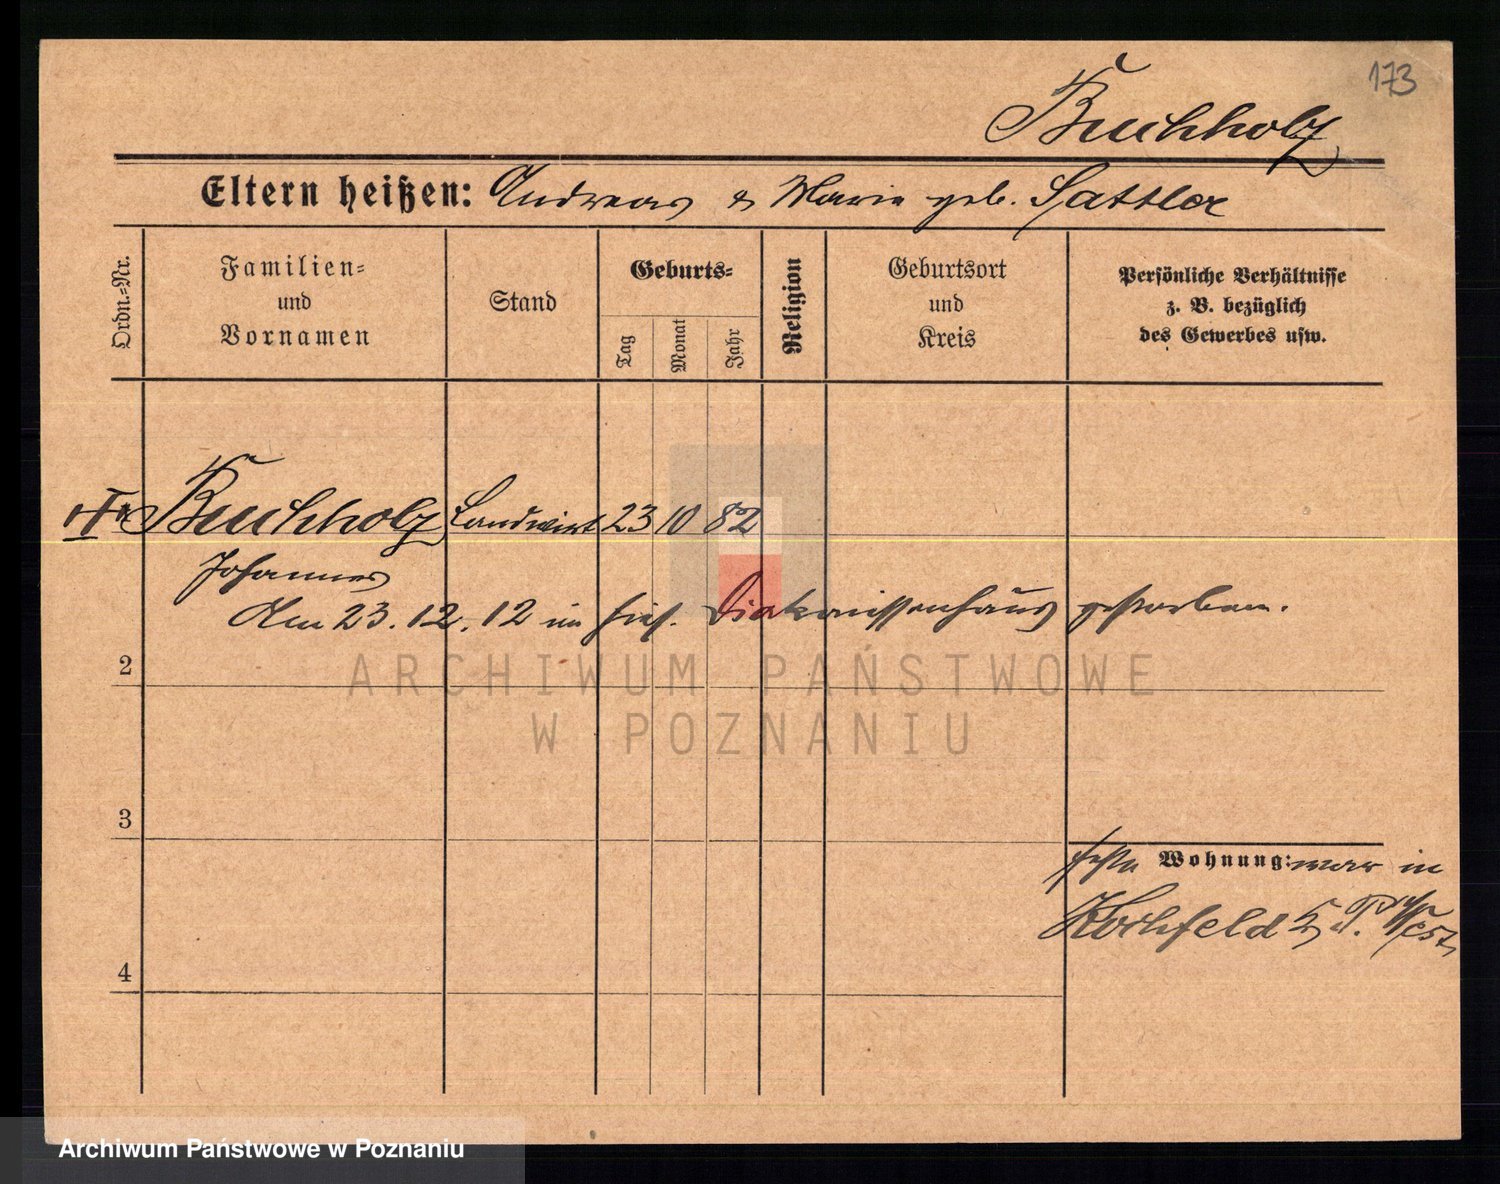 173
Buchholz
Eltern heißen: Andreas & Marie geb. Sattler
Ordn.-Nr.
Familien-
und
Vornamen
Stand
Geburts-
Tag
Monat
Jahr
Religion
Geburtsort
und
Kreis
Persönliche Verhältnisse
z. B. bezüglich
des Gewerbes usw.
Buchholz Landwirt 23 10 82
Johannes
Am 23. 12. 12 im hies. Diakonissenhaus gestorben.
2
3
4
feste Wohnung: war in
ARCHIWUM PAŃSTWOWE
W POZNANIU
Archiwum Państwowe w Poznaniu